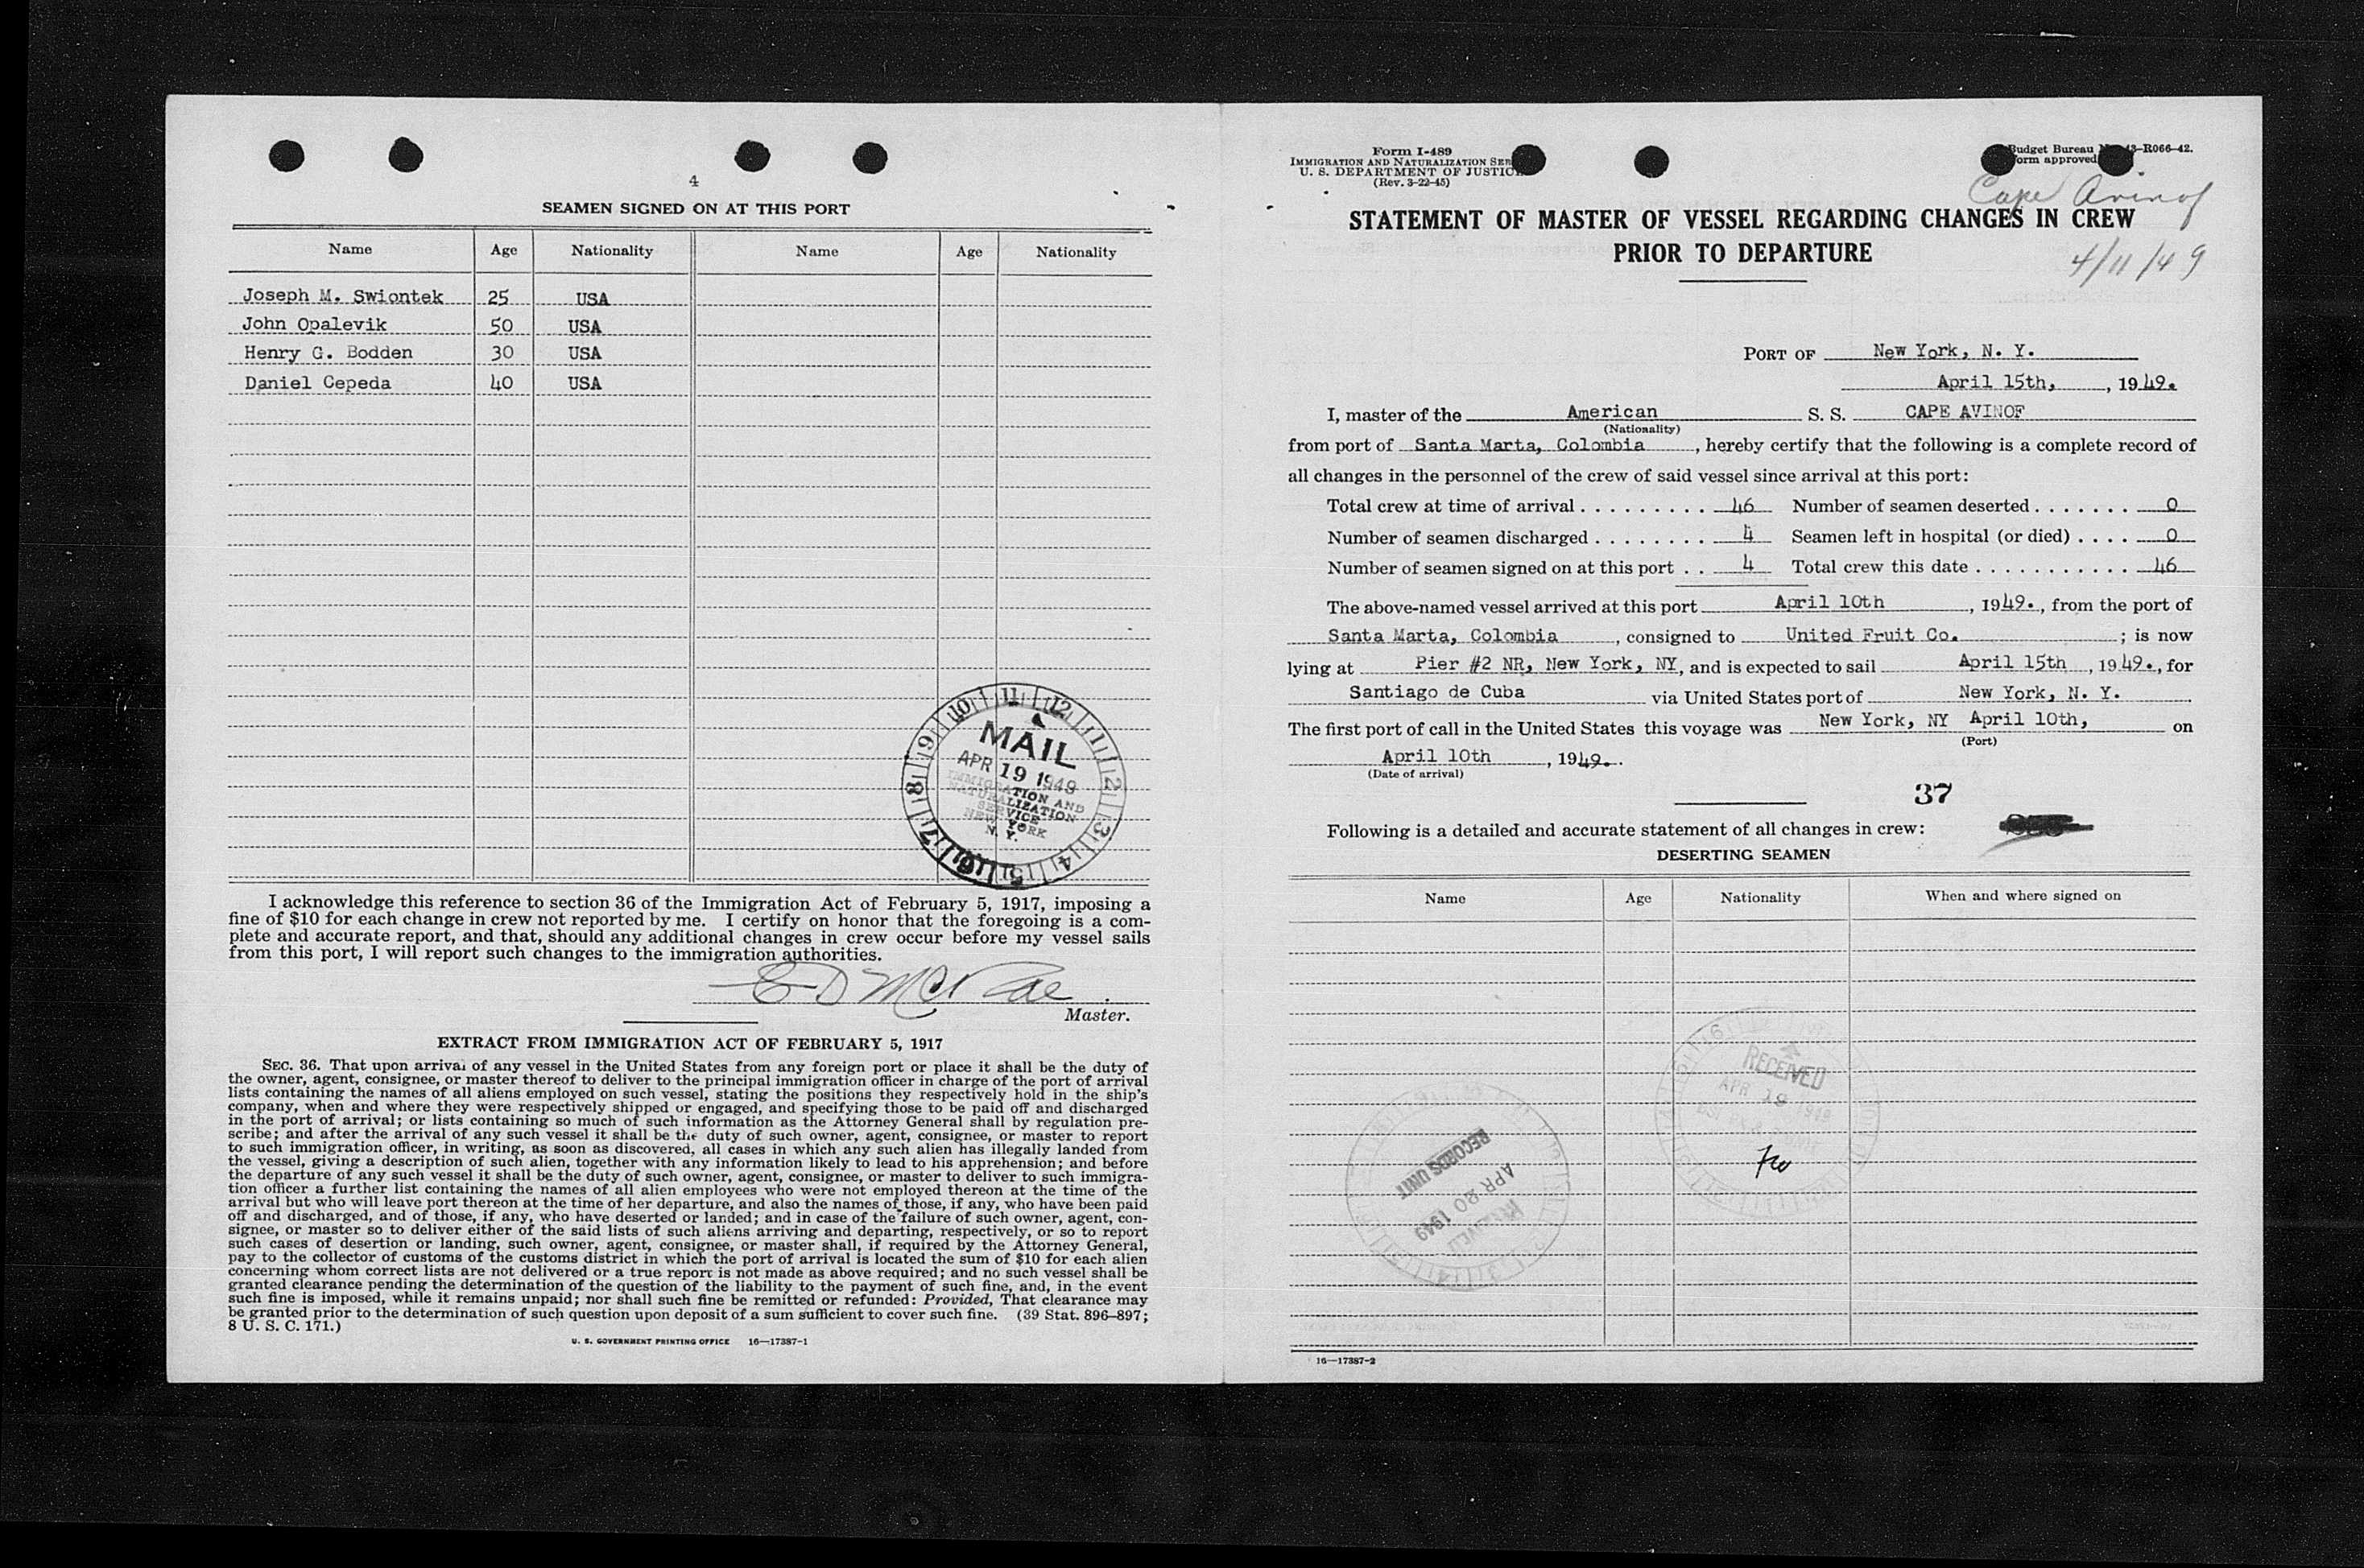 4
SEAMEN SIGNED ON AT THIS PORT
Name Age Nationality Name Age Nationality
Joseph M. Swiontek 25 USA
John Opalevik 50 USA
Henry G. Bodden 30 USA
Daniel Cepeda 40 USA
10 11 12 1 2 3 4 5 6 7 8 9
MAIL
APR 19 1949
IMMIGRATION AND
NATURALIZATION
SERVICE
NEW YORK
N. Y.
I acknowledge this reference to section 36 of the Immigration Act of February 5, 1917, imposing a
fine of $10 for each change in crew not reported by me. I certify on honor that the foregoing is a com-
plete and accurate report, and that, should any additional changes in crew occur before my vessel sails
from this port, I will report such changes to the immigration authorities.
E D McRae
Master.
EXTRACT FROM IMMIGRATION ACT OF FEBRUARY 5, 1917
SEC. 36. That upon arrival of any vessel in the United States from any foreign port or place it shall be the duty of
the owner, agent, consignee, or master thereof to deliver to the principal immigration officer in charge of the port of arrival
lists containing the names of all aliens employed on such vessel, stating the positions they respectively hold in the ship's
company, when and where they were respectively shipped or engaged, and specifying those to be paid off and discharged
in the port of arrival; or lists containing so much of such information as the Attorney General shall by regulation pre-
scribe; and after the arrival of any such vessel it shall be the duty of such owner, agent, consignee, or master to report
to such immigration officer, in writing, as soon as discovered, all cases in which any such alien has illegally landed from
the vessel, giving a description of such alien, together with any information likely to lead to his apprehension; and before
the departure of any such vessel it shall be the duty of such owner, agent, consignee, or master to deliver to such immigra-
tion officer a further list containing the names of all alien employees who were not employed thereon at the time of the
arrival but who will leave port thereon at the time of her departure, and also the names of those, if any, who have been paid
off and discharged, and of those, if any, who have deserted or landed; and in case of the failure of such owner, agent, con-
signee, or master so to deliver either of the said lists of such aliens arriving and departing, respectively, or so to report
such cases of desertion or landing, such owner, agent, consignee, or master shall, if required by the Attorney General,
pay to the collector of customs of the customs district in which the port of arrival is located the sum of $10 for each alien
concerning whom correct lists are not delivered or a true report is not made as above required; and no such vessel shall be
granted clearance pending the determination of the question of the liability to the payment of such fine, and, in the event
such fine is imposed, while it remains unpaid; nor shall such fine be remitted or refunded: Provided, That clearance may
be granted prior to the determination of such question upon deposit of a sum sufficient to cover such fine. (39 Stat. 896–897;
8 U. S. C. 171.)
U. S. GOVERNMENT PRINTING OFFICE 16—17387-1
Form I-489
IMMIGRATION AND NATURALIZATION SER
U. S. DEPARTMENT OF JUSTIC
(Rev. 3-22-45)
Budget Bureau 43-R066-42.
orm approved
Cape Avinof
4/11/49
STATEMENT OF MASTER OF VESSEL REGARDING CHANGES IN CREW
PRIOR TO DEPARTURE
PORT OF New York, N. Y.
April 15th, , 1949.
I, master of the American S. S. CAPE AVINOF
(Nationality)
from port of Santa Marta, Colombia , hereby certify that the following is a complete record of
all changes in the personnel of the crew of said vessel since arrival at this port:
Total crew at time of arrival . . . . . . . . . 46 Number of seamen deserted . . . . . . . 0
Number of seamen discharged . . . . . . . . 4 Seamen left in hospital (or died) . . . . 0
Number of seamen signed on at this port . . 4 Total crew this date . . . . . . . . . . . 46
The above-named vessel arrived at this port April 10th , 1949. , from the port of
Santa Marta, Colombia , consigned to United Fruit Co. ; is now
lying at Pier #2 NR, New York, NY, and is expected to sail April 15th , 1949. , for
Santiago de Cuba via United States port of New York, N. Y.
The first port of call in the United States this voyage was New York, NY April 10th, on
(Port)
April 10th , 1949. .
(Date of arrival)
37
Following is a detailed and accurate statement of all changes in crew:
DESERTING SEAMEN
Name Age Nationality When and where signed on
RECEIVED
APR 19 1949
RECORDS UNIT
APR 20 1949
RECEIVED
16—17387-2